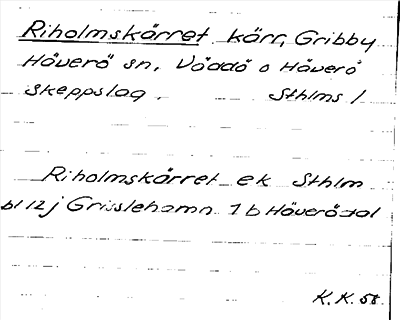 Riholmskärret kärr, Gribby
Häverö sn, Väddö o Häverö
Skeppslag. Sthlms l.
Riholmskärret ek Sthlm
bl 12 j Grisslehamn 1 b Häverö-dal
K.K. 58.